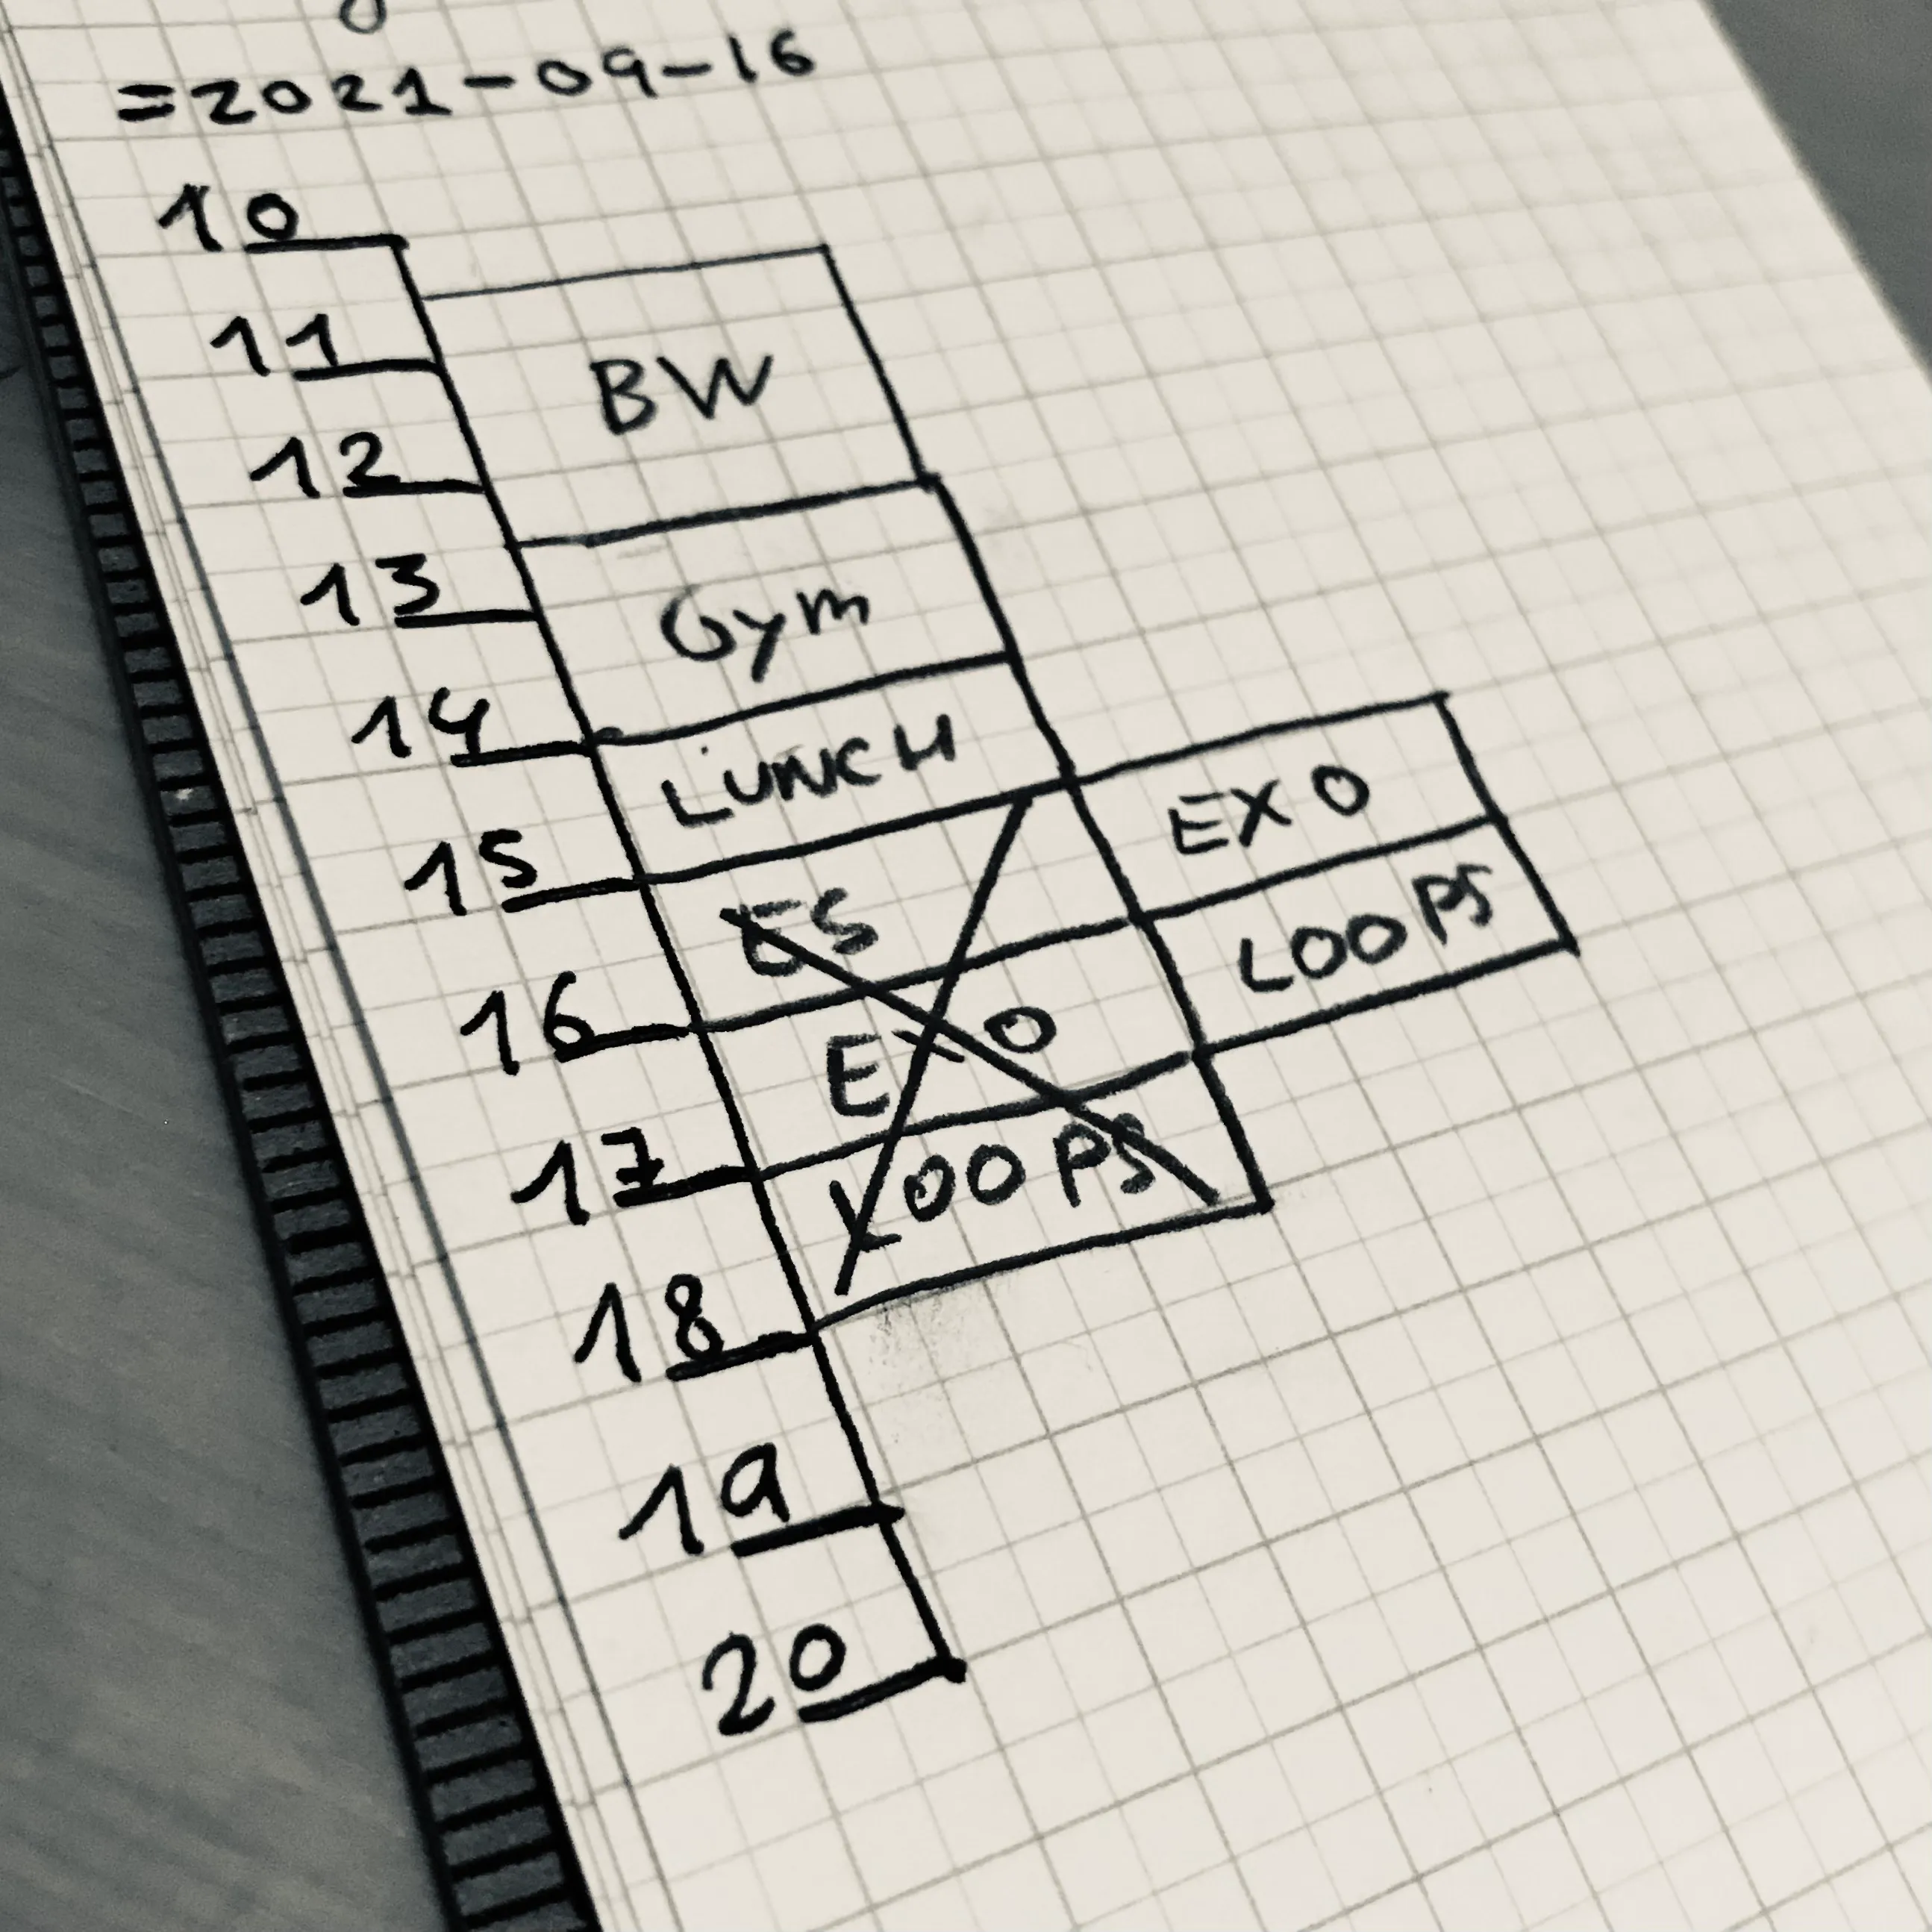 =2021-09-16
10
11
BW
12
13
Gym
14
LUNCH
15
ES
EXO
16
EXO
LOOPS
17
LOOPS
18
19
20